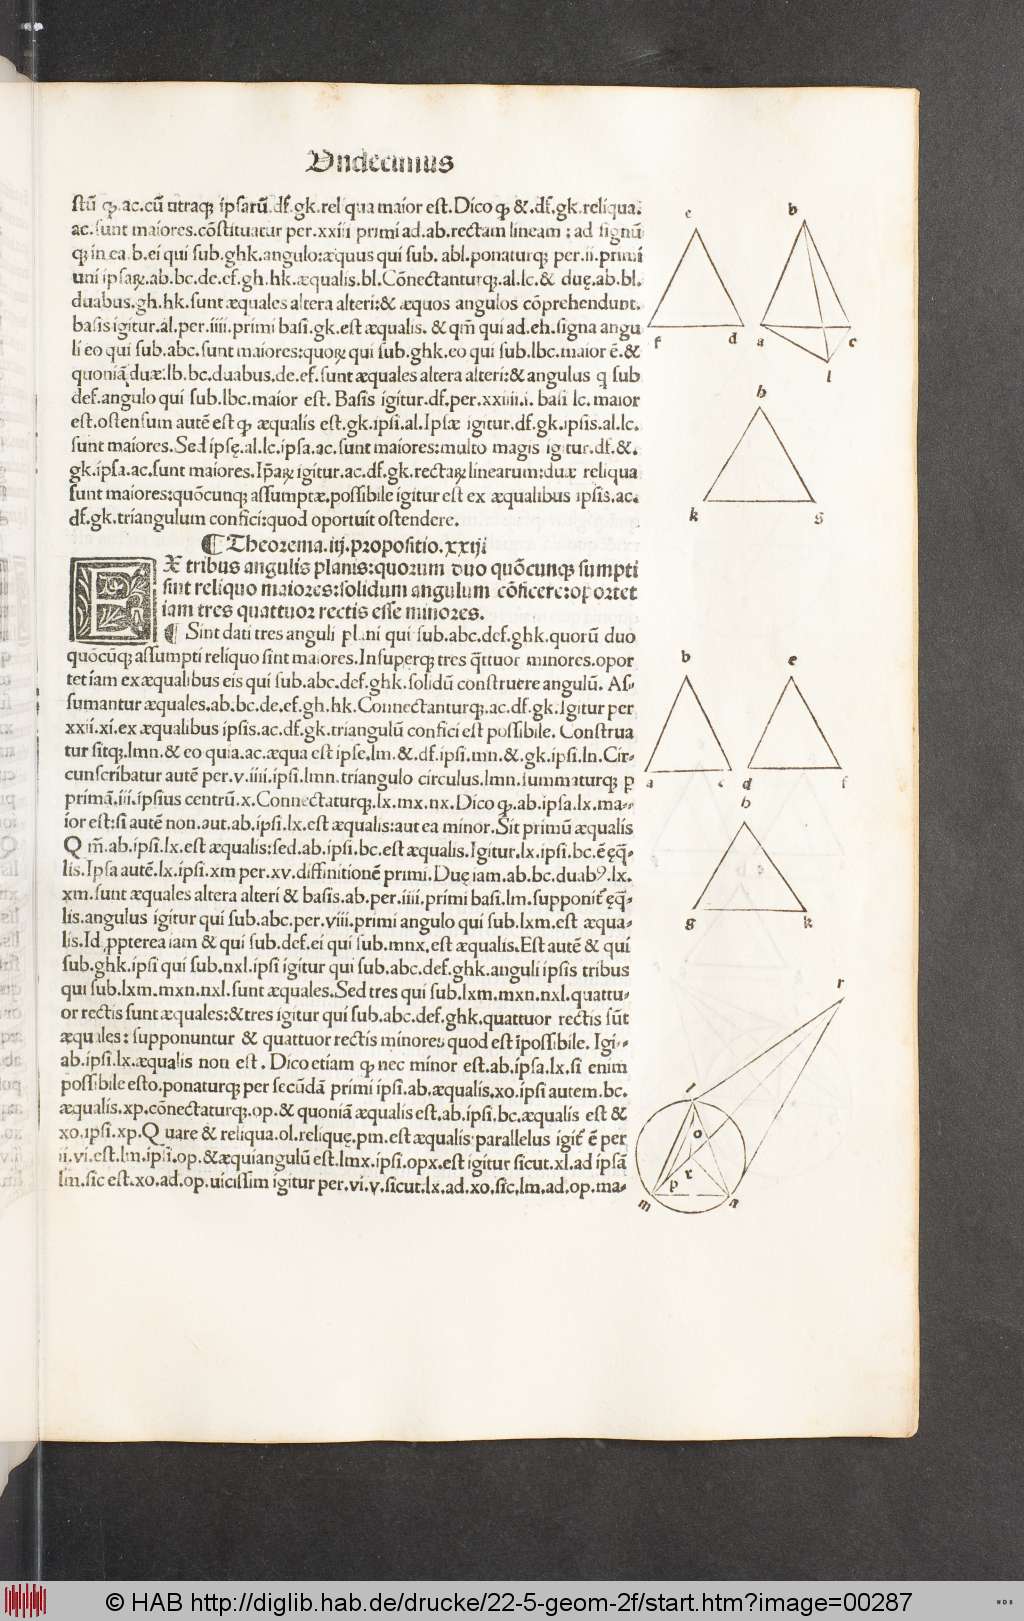 Undecimus
stū ꝙ.ac.cū utraqꝫ ipsarū.df.gk.reliqua maior est.Dico ꝙ &.df.gk.reliqua.
ac.sunt maiores.cōstituatur per.xxiii primi ad.ab.rectam lineam: ad signū
qꝫ in ea.b.ei qui sub.ghk.angulo:æquus qui sub. abl.ponaturqꝫ per.ii.primi
uni ipsaꝝ.ab.bc.de.ef.gh.hk.æqualis.bl.Cōnectanturqꝫ.al.lc.& duę.ab.bl.
duabus.gh.hk.sunt æquales altera alteri:& æquos angulos cōprehendunt.
basis igitur.al.per.iiii.primi basi.gk.est æqualis. & qm̄ qui ad.eh.signa angu
li eo qui sub.abc.sunt maiores:quoꝝ qui sub.ghk.eo qui sub.lbc.maior ē.&
quoniā duæ.lb.bc.duabus.de.ef.sunt æquales altera alteri:& angulus q sub
def.angulo qui sub.lbc.maior est. Basis igitur.df.per.xxiiii.i. basi lc. maior
est.ostensum autē est ꝙ æqualis est.gk.ipsi.al.Ipsæ igitur.df.gk.ipsis.al.lc.
sunt maiores.Sed ipsę.al.lc.ipsa.ac.sunt maiores:multo magis igitur.df.&.
gk.ipsa.ac.sunt maiores.Ip̄aꝝ igitur.ac.df.gk.rectaꝝ linearum:duæ reliqua
sunt maiores:quōcunqꝫ assumptæ.possibile igitur est ex æqualibus ipsis.ac.
df.gk.triangulum confici:quod oportuit ostendere.
¶ Theorema.iij.propositio.xxiij
EX tribus angulis planis:quorum duo quōcunqꝫ sumpti
sint reliquo maiores:solidum angulum cōficere:oportet
iam tres quattuor rectis esse minores.
¶ Sint dati tres anguli plani qui sub.abc.def.ghk.quorū duo
quōcūqꝫ assumpti reliquo sint maiores.Insuperqꝫ tres q̄ttuor minores.opor
tet iam ex æqualibus eis qui sub.abc.def.ghk.solidū construere angulū. As-
sumantur æquales.ab.bc.de.ef.gh.hk.Connectanturqꝫ.ac.df.gk.Igitur per
xxii.xi.ex æqualibus ipsis.ac.df.gk.triangulū confici est possibile. Construa
tur sitqꝫ.lmn.& eo quia.ac.æqua est ipse.lm.&.df.ipsi.mn.&.gk.ipsi.ln.Cir-
cunscribatur autē per.v.iiii.ipsi.lmn.triangulo circulus.lmn.summaturqꝫ ꝑ
primā.iii.ipsius centrū.x.Connectaturqꝫ.lx.mx.nx.Dico ꝙ.ab.ipsa.lx.ma-
ior est:si autē non.aut.ab.ipsi.lx.est æqualis:aut ea minor.Sit primū æqualis
Qm̄.ab.ipsi.lx.est æqualis:sed.ab.ipsi.bc.est æqualis.Igitur.lx.ipsi.bc.ē ęq̄-
lis.Ipsa autē.lx.ipsi.xm per.xv.diffinitionē primi.Duę iam.ab.bc.duabꝰ.lx.
xm.sunt æquales altera alteri & basis.ab.per.iiii.primi basi.lm.supponit̄ ęq̄-
lis.angulus igitur qui sub.abc.per.viii.primi angulo qui sub.lxm.est æqua-
lis.Id ꝓpterea iam & qui sub.def.ei qui sub.mnx.est æqualis.Est autē & qui
sub.ghk.ipsi qui sub.nxl.ipsi igitur qui sub.abc.def.ghk.anguli ipsis tribus
qui sub.lxm.mxn.nxl.sunt æquales.Sed tres qui sub.lxm.mxn.nxl.quattu-
or rectis sunt æquales:& tres igitur qui sub.abc.def.ghk.quattuor rectis sūt
æquales: supponuntur & quattuor rectis minores quod est īpossibile. Igi-
ab.ipsi.lx.æqualis non est. Dico etiam ꝙ nec minor est.ab.ipsa.lx.si enim
possibile esto.ponaturqꝫ per secūdā primi ipsi.ab.æqualis.xo.ipsi autem.bc.
æqualis.xp.cōnectaturqꝫ.op.& quoniā æqualis est.ab.ipsi.bc.æqualis est &
xo.ipsi.xp.Quare & reliqua.ol.reliquę.pm.est æqualis.parallelus igit̄ ē per
ii.vi.est.lm.ipsi.op.& æquiangulū est.lmx.ipsi.opx.est igitur sicut.xl.ad ipsā
lm.sic est.xo.ad.op.uicissim igitur per.vi.v.sicut.lx.ad.xo.sic.lm.ad.op.ma-
e b
f d a c
l
h
k g
b e
a c d f
h
g k
r
l
o
p x
m n
© HAB http://diglib.hab.de/drucke/22-5-geom-2f/start.htm?image=00287